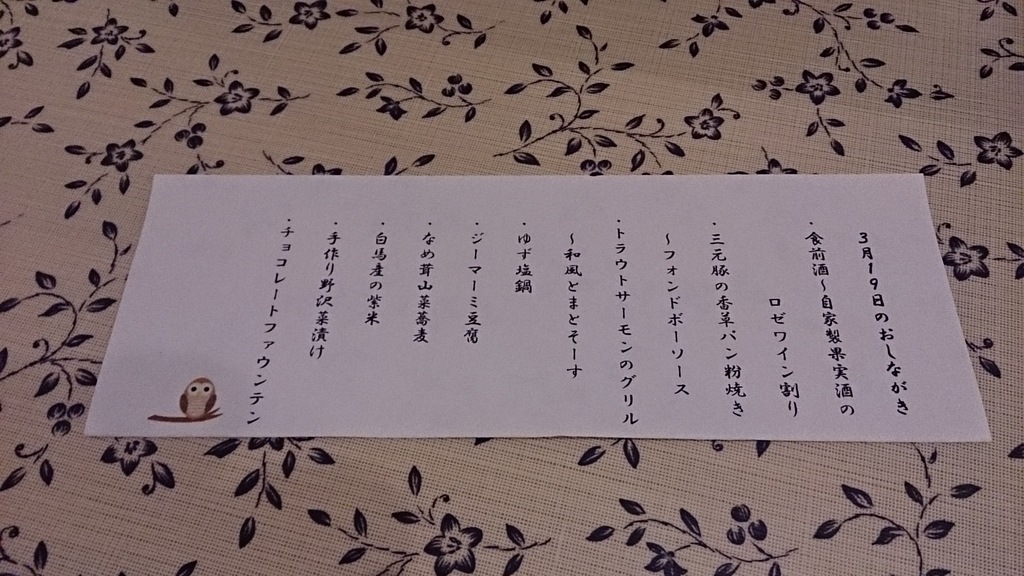 3月19日のおしながき
・食前酒～自家製果実酒の
ロゼワイン割り
・三元豚の香草パン粉焼き
～フォンドボーソース
・トラウトサーモンのグリル
～和風とまとそーす
・ゆず塩鍋
・ジーマーミ豆腐
・なめ茸山菜蕎麦
・白馬産の紫米
・手作り野沢菜漬け
・チョコレートファウンテン